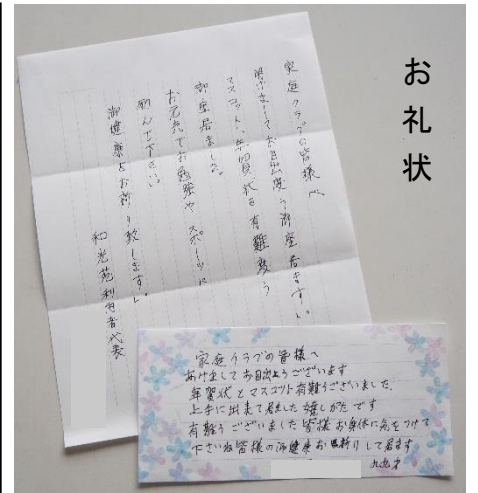 お礼状
家庭クラブの皆様へ
明けましてお目出度う御座居ます。
マスコット、年賀状を有難度う
御座居ました。
お元気でお勉強や スポーツに
励んで下さい。
御健康をお祈り致します。
和光苑利用者代表
家庭クラブの皆様へ
あけましてお目出とうございます
年賀状とマスコット有難うございました
上手に出来て居ました嬉しかたです
有難うございました皆様お身体に気をつけて
下さいね皆様の御健康お祈りして居ます
九十九才